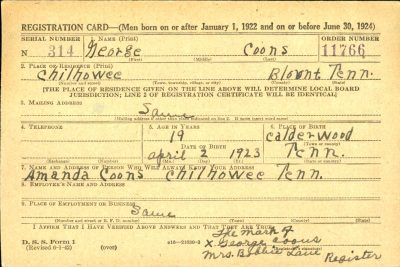 REGISTRATION CARD—(Men born on or after January 1, 1922 and on or before June 30, 1924)
SERIAL NUMBER 1. NAME (Print) ORDER NUMBER
N 314 George Coons 11766
(First) (Middle) (Last)
2. PLACE OF RESIDENCE (Print)
Chilhowee Blount Tenn.
(Number and street) (Town, township, village, or city) (County) (State)
[THE PLACE OF RESIDENCE GIVEN ON THE LINE ABOVE WILL DETERMINE LOCAL BOARD
JURISDICTION; LINE 2 OF REGISTRATION CERTIFICATE WILL BE IDENTICAL]
3. MAILING ADDRESS
Same
4. TELEPHONE 5. AGE IN YEARS 6. PLACE OF BIRTH
19 Calderwood
DATE OF BIRTH (Town or county)
april 2 1923 Tenn.
(Mo.) (Day) (Yr.) (State or country)
7. NAME AND ADDRESS OF PERSON WHO WILL ALWAYS KNOW YOUR ADDRESS
Amanda Coons Chilhowee Tenn.
8. EMPLOYER'S NAME AND ADDRESS
9. PLACE OF EMPLOYMENT OR BUSINESS
Same
(Number and street or R. F. D. number) (Town) (County) (State)
I AFFIRM THAT I HAVE VERIFIED ABOVE ANSWERS AND THAT THEY ARE TRUE.
The mark of
D. S. S. Form 1 X George Coons
(Revised 6-1-42) (over) Mrs. Lane Register